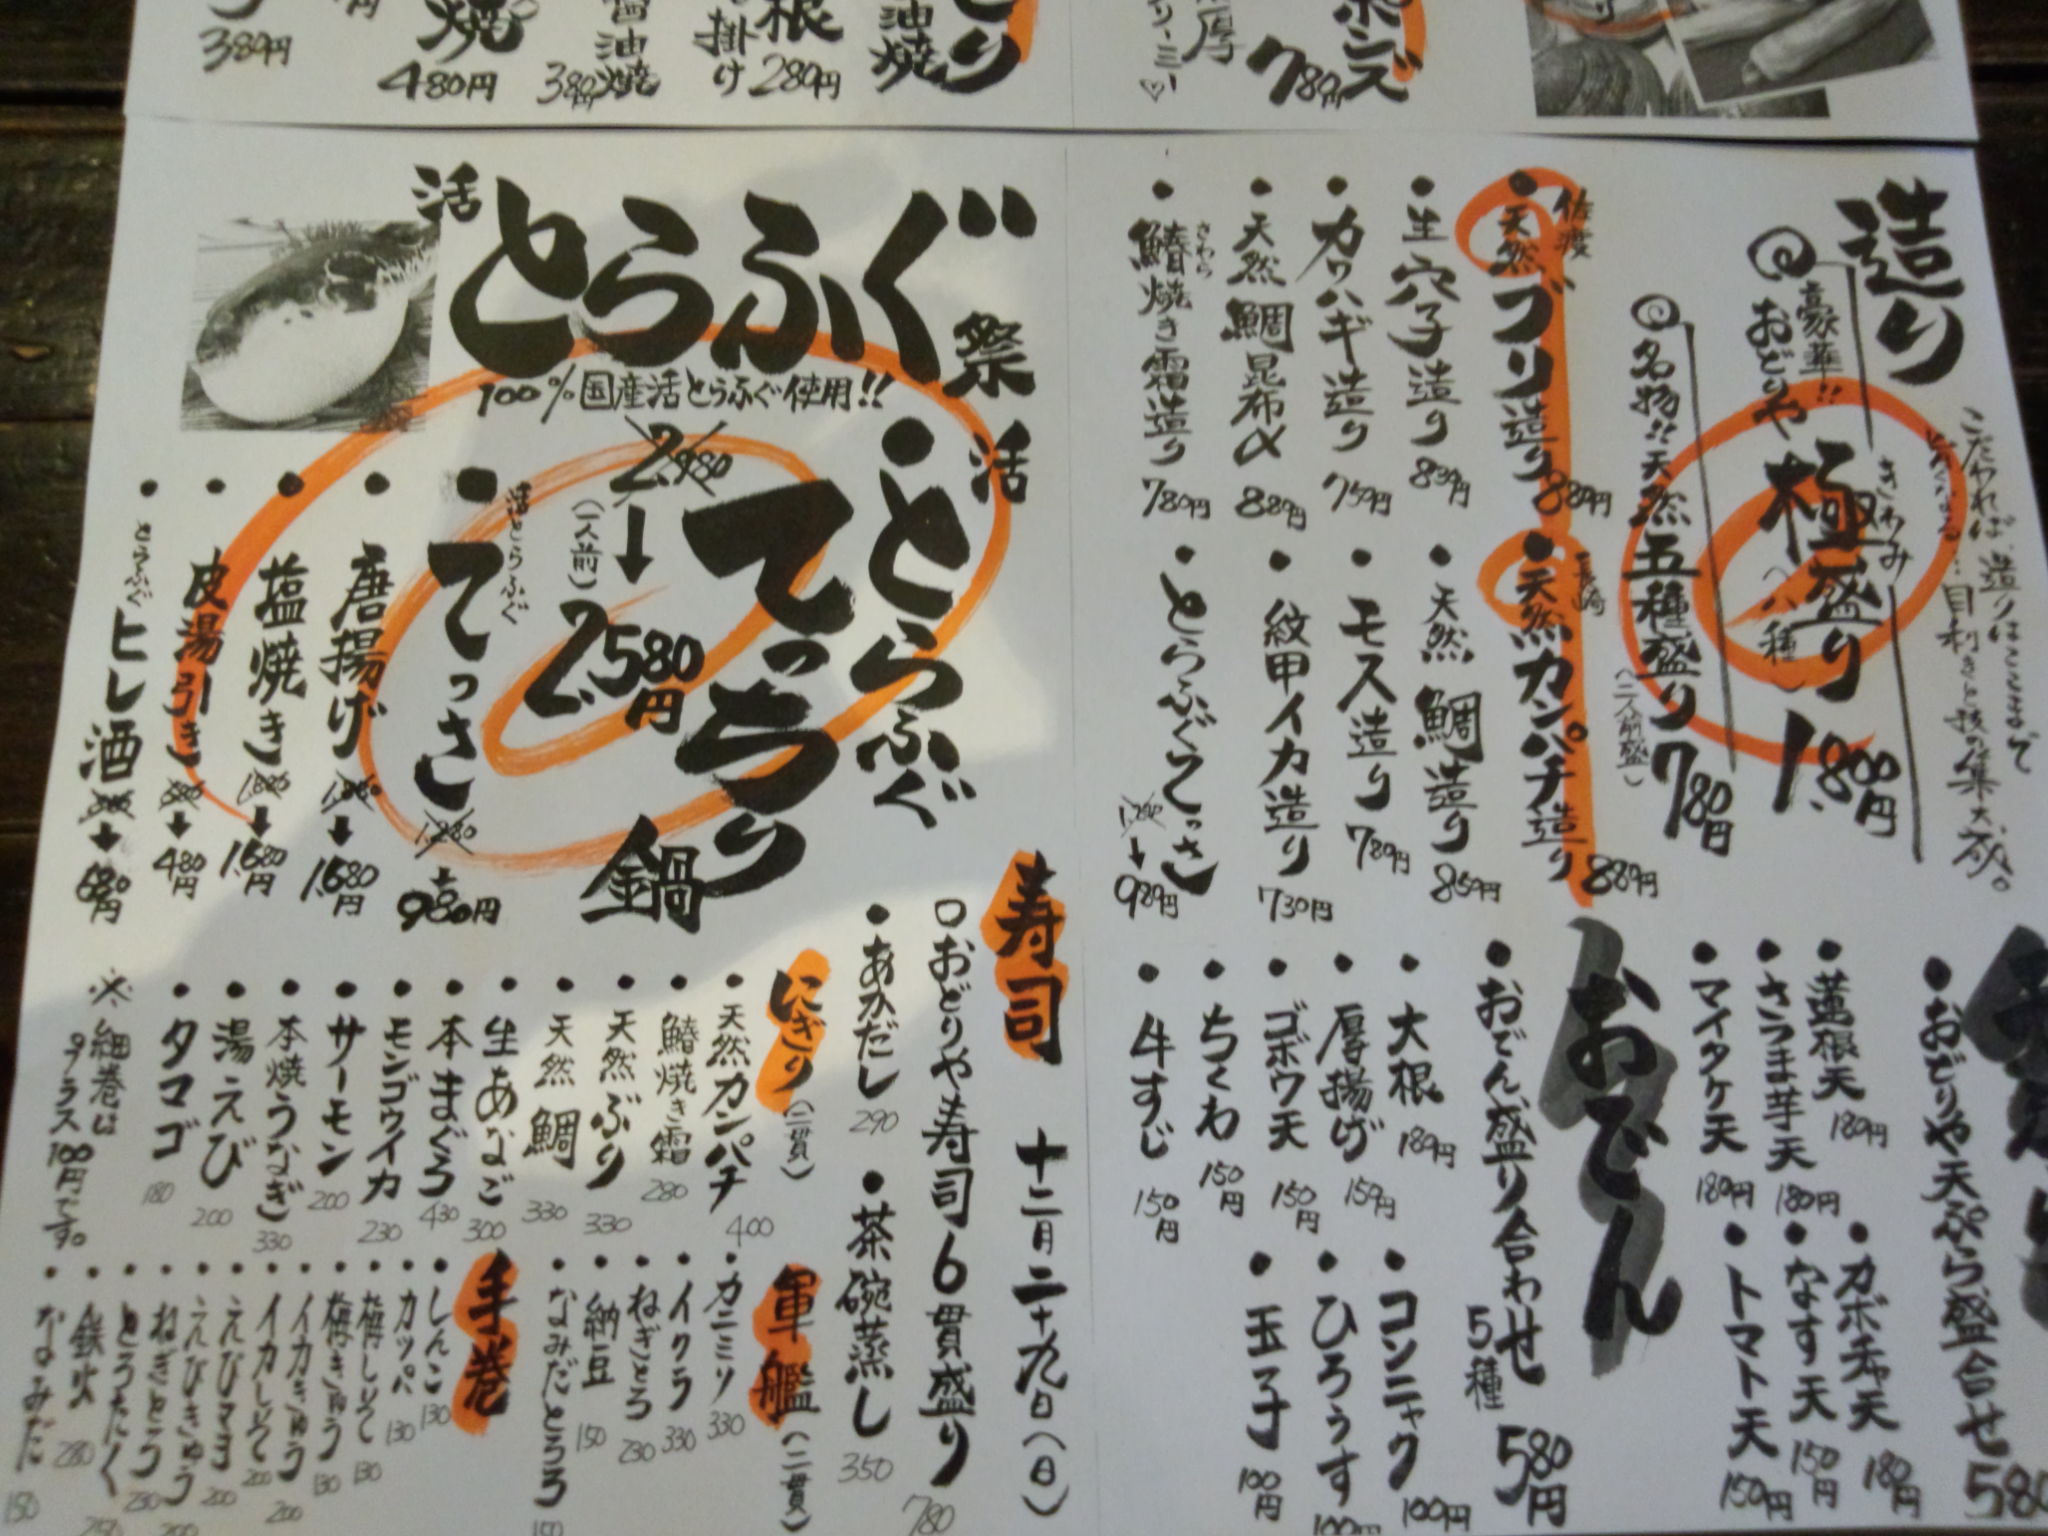 380円
焼
480円
醤油焼
380円
掛け
根
280円
油焼
り
厚
ポンズ
780円
造り
こだわれば造りはここまで
豪華!!
おどりや
極盛り
きわみ
(八種)
1.800円
名物!!天然五種盛り
(二人前盛)
780円
佐渡
・天然ブリ造り
880円
・生穴子造り
830円
・カワハギ造り
750円
・天然鯛昆布〆
880円
・鰆焼き霜造り
さわら
780円
長崎
・天然カンパチ造り
880円
・天然鯛造り
850円
・モス造り
780円
・紋甲イカ造り
730円
・とらふぐてっさ
1,280
↓
980円
活
とらふぐ
祭
100%国産活とらふぐ使用!!
活
・とらふぐ
てっちり
鍋
2.980
↓
(一人前)
2.580円
・てっさ
活とらふぐ
1,280
↓
980円
・唐揚げ
↓
1.680円
・塩焼き
↓
1.680円
・皮湯引き
↓
480円
・とらふぐ
ヒレ酒
↓
680円
・おどりや天ぷら盛合せ
580
・蓮根天
180円
・さつま芋天
180円
・マイタケ天
180円
・カボチャ天
180円
・なす天
150円
・トマト天
150円
おでん
・おでん盛り合わせ
5種
580円
・大根
180円
・厚揚げ
150円
・ゴボウ天
150円
・ちくわ
150円
・牛すじ
150円
・コンニャク
100円
・ひろうす
100円
・玉子
100円
寿司
十二月二十九日(日)
□おどりや寿司6貫盛り
780
・あかだし
290
・茶碗蒸し
350
にぎり
(二貫)
・天然カンパチ
400
・鰆焼き霜
280
・天然ぶり
330
・天然鯛
330
・生あなご
300
・本まぐろ
430
・モンゴウイカ
230
・サーモン
200
・本焼うなぎ
330
・湯えび
200
・タマゴ
180
※細巻は
プラス100円です。
軍艦
(二貫)
・カニミソ
330
・イクラ
330
・ねぎとろ
230
・納豆
150
・なみだとろろ
150
手巻
・しんこ
130
・カッパ
130
・梅しそ
130
・梅きゅう
130
・イカきゅう
200
・イカしそ
200
・えびマヨ
200
・えびきゅう
200
・ねぎとろ
230
・とろたく
250
・鉄火
280
・なみだ
150